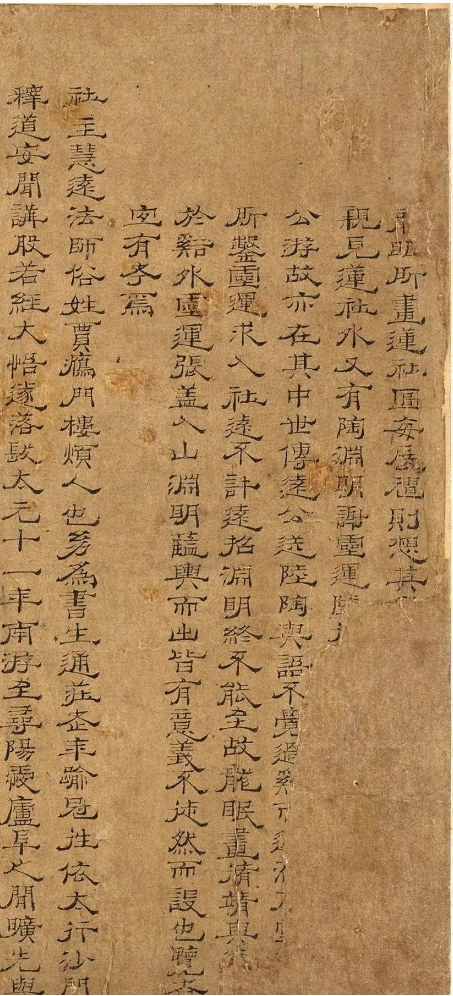 所畫蓮社圖每展禮則想其
親見蓮社外又有陶淵明謝靈運
公游故亦在其中世傳遠公送陸陶與語不覺過谿
所鑒靈運求入社遠不許遠招淵明終不能至故龍眠畫脩靜與
於谿外靈運張盖入山淵明藍輿而出皆有意義不徒然而設也覽者
宜有考焉
社主慧遠法師俗姓賈鴈門樓煩人也㓜為書生通莊老年踰冠往依太行沙門
釋道安聞講般若經大悟遂落髮太元十一年南游至尋陽愛廬阜之閒曠先與